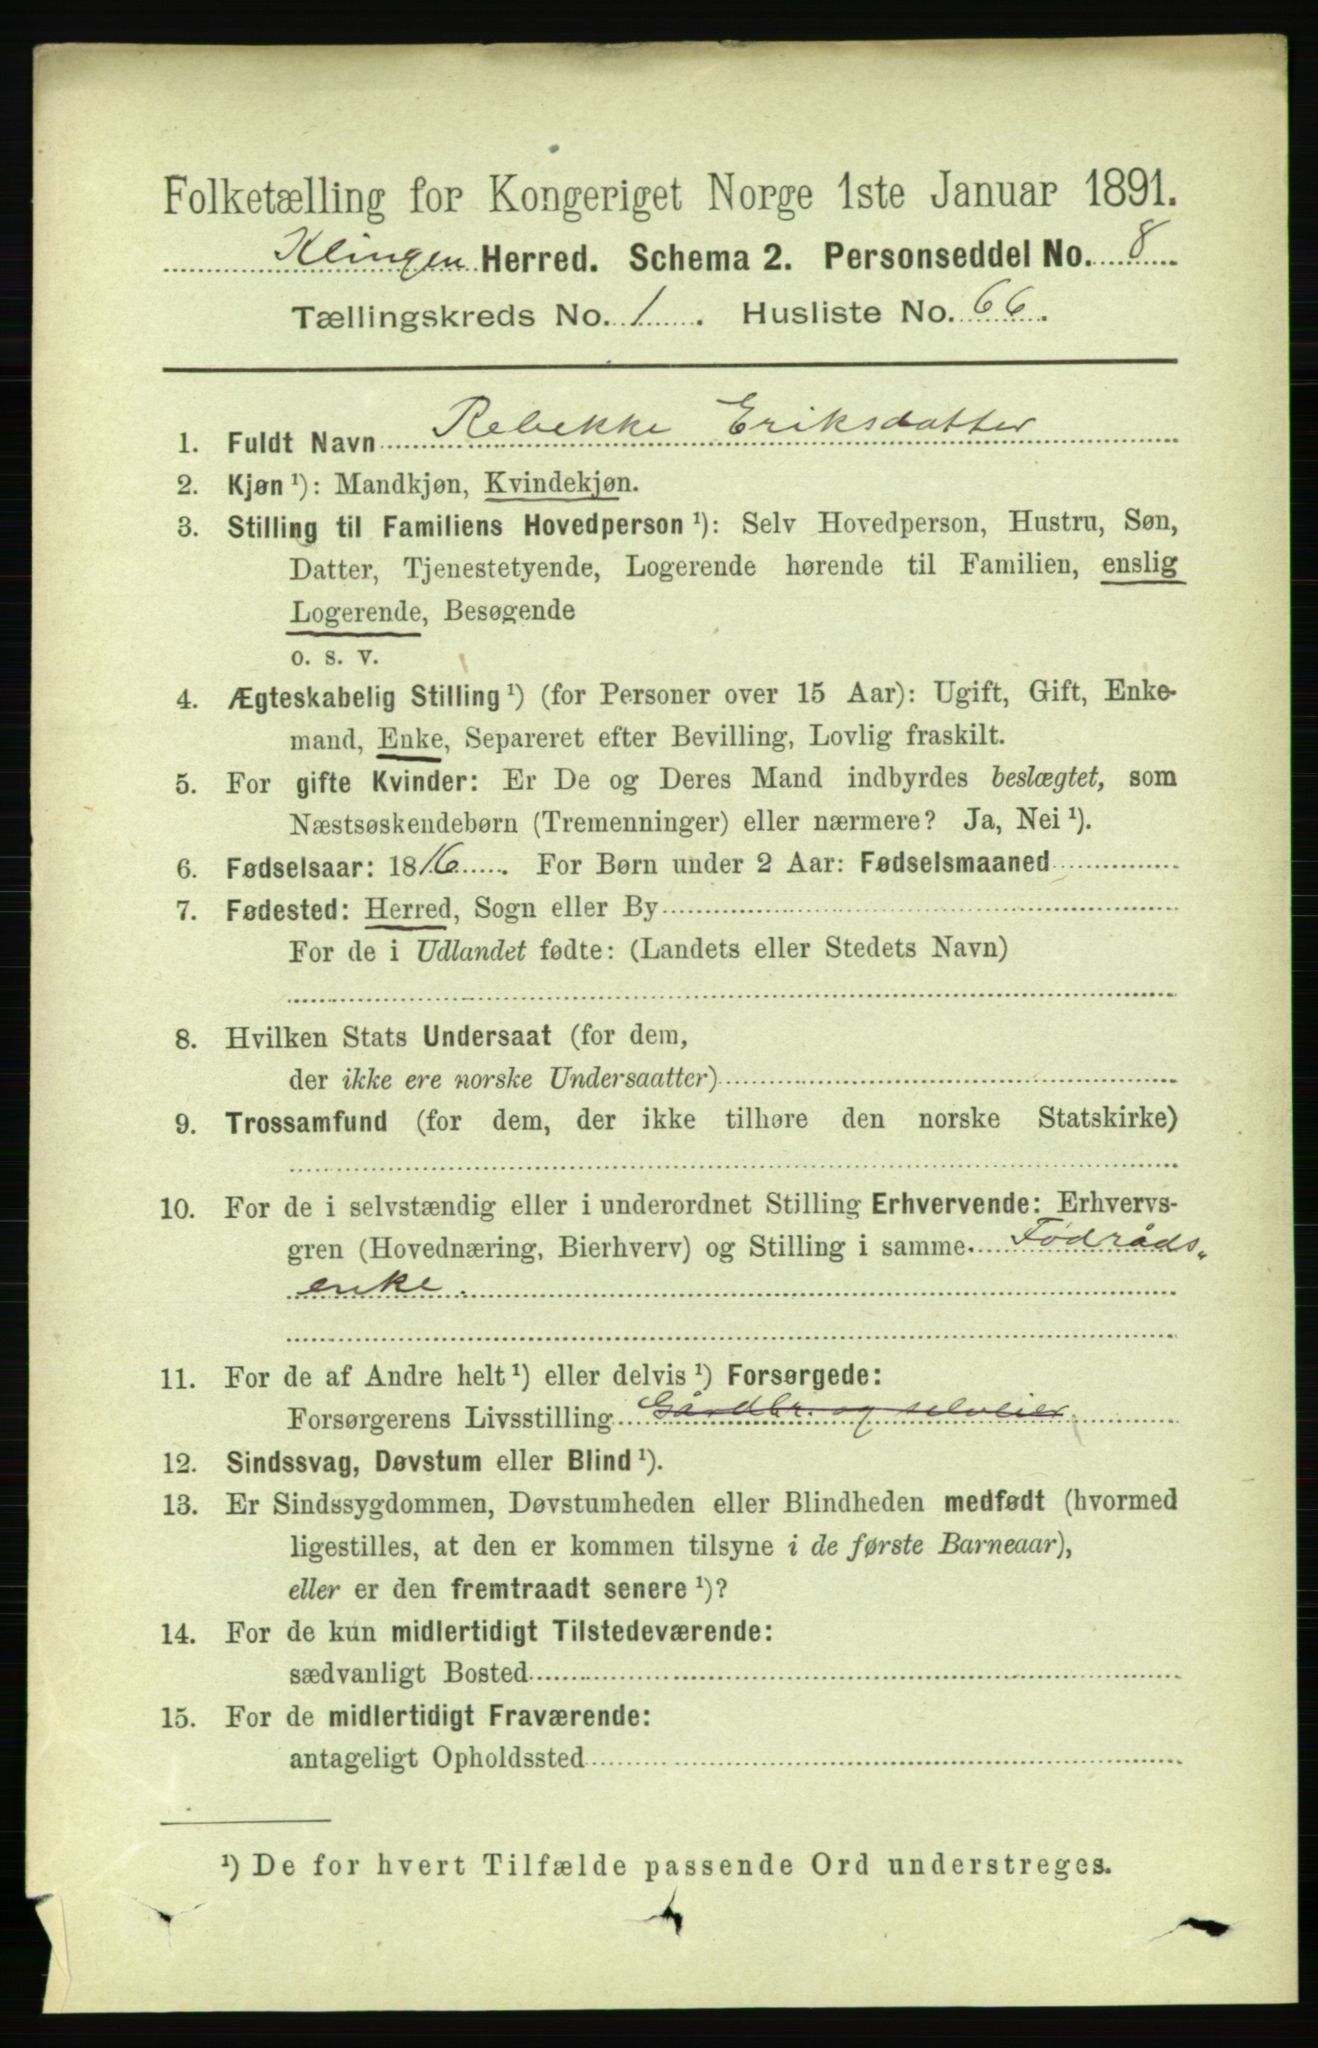 Folketælling for Kongeriget Norge 1ste Januar 1891.
Klingen Herred. Schema 2. Personseddel No. 8
Tællingskreds No. 1. Husliste No. 66.
1. Fuldt Navn Rebekke Eriksdatter
2. Kjøn ¹): Mandkjøn, Kvindekjøn.
3. Stilling til Familiens Hovedperson ¹): Selv Hovedperson, Hustru, Søn,
Datter, Tjenestetyende, Logerende hørende til Familien, enslig
Logerende, Besøgende
o. s. v.
4. Ægteskabelig Stilling ¹) (for Personer over 15 Aar): Ugift, Gift, Enke-
mand, Enke, Separeret efter Bevilling, Lovlig fraskilt.
5. For gifte Kvinder: Er De og Deres Mand indbyrdes beslægtet, som
Næstsøskendebørn (Tremenninger) eller nærmere? Ja, Nei ¹).
6. Fødselsaar: 1816. For Børn under 2 Aar: Fødselsmaaned
7. Fødested: Herred, Sogn eller By
For de i Udlandet fødte: (Landets eller Stedets Navn)
8. Hvilken Stats Undersaat (for dem,
der ikke ere norske Undersaatter)
9. Trossamfund (for dem, der ikke tilhøre den norske Statskirke)
10. For de i selvstændig eller i underordnet Stilling Erhvervende: Erhvervs-
gren (Hovednæring, Bierhverv) og Stilling i samme. Fødråds-
enke.
11. For de af Andre helt ¹) eller delvis ¹) Forsørgede:
Forsørgerens Livsstilling Gårdbr. og selveier
12. Sindssvag, Døvstum eller Blind ¹).
13. Er Sindssygdommen, Døvstumheden eller Blindheden medfødt (hvormed
ligestilles, at den er kommen tilsyne i de første Barneaar),
eller er den fremtraadt senere ¹)?
14. For de kun midlertidigt Tilstedeværende:
sædvanligt Bosted
15. For de midlertidigt Fraværende:
antageligt Opholdssted
¹) De for hvert Tilfælde passende Ord understreges.